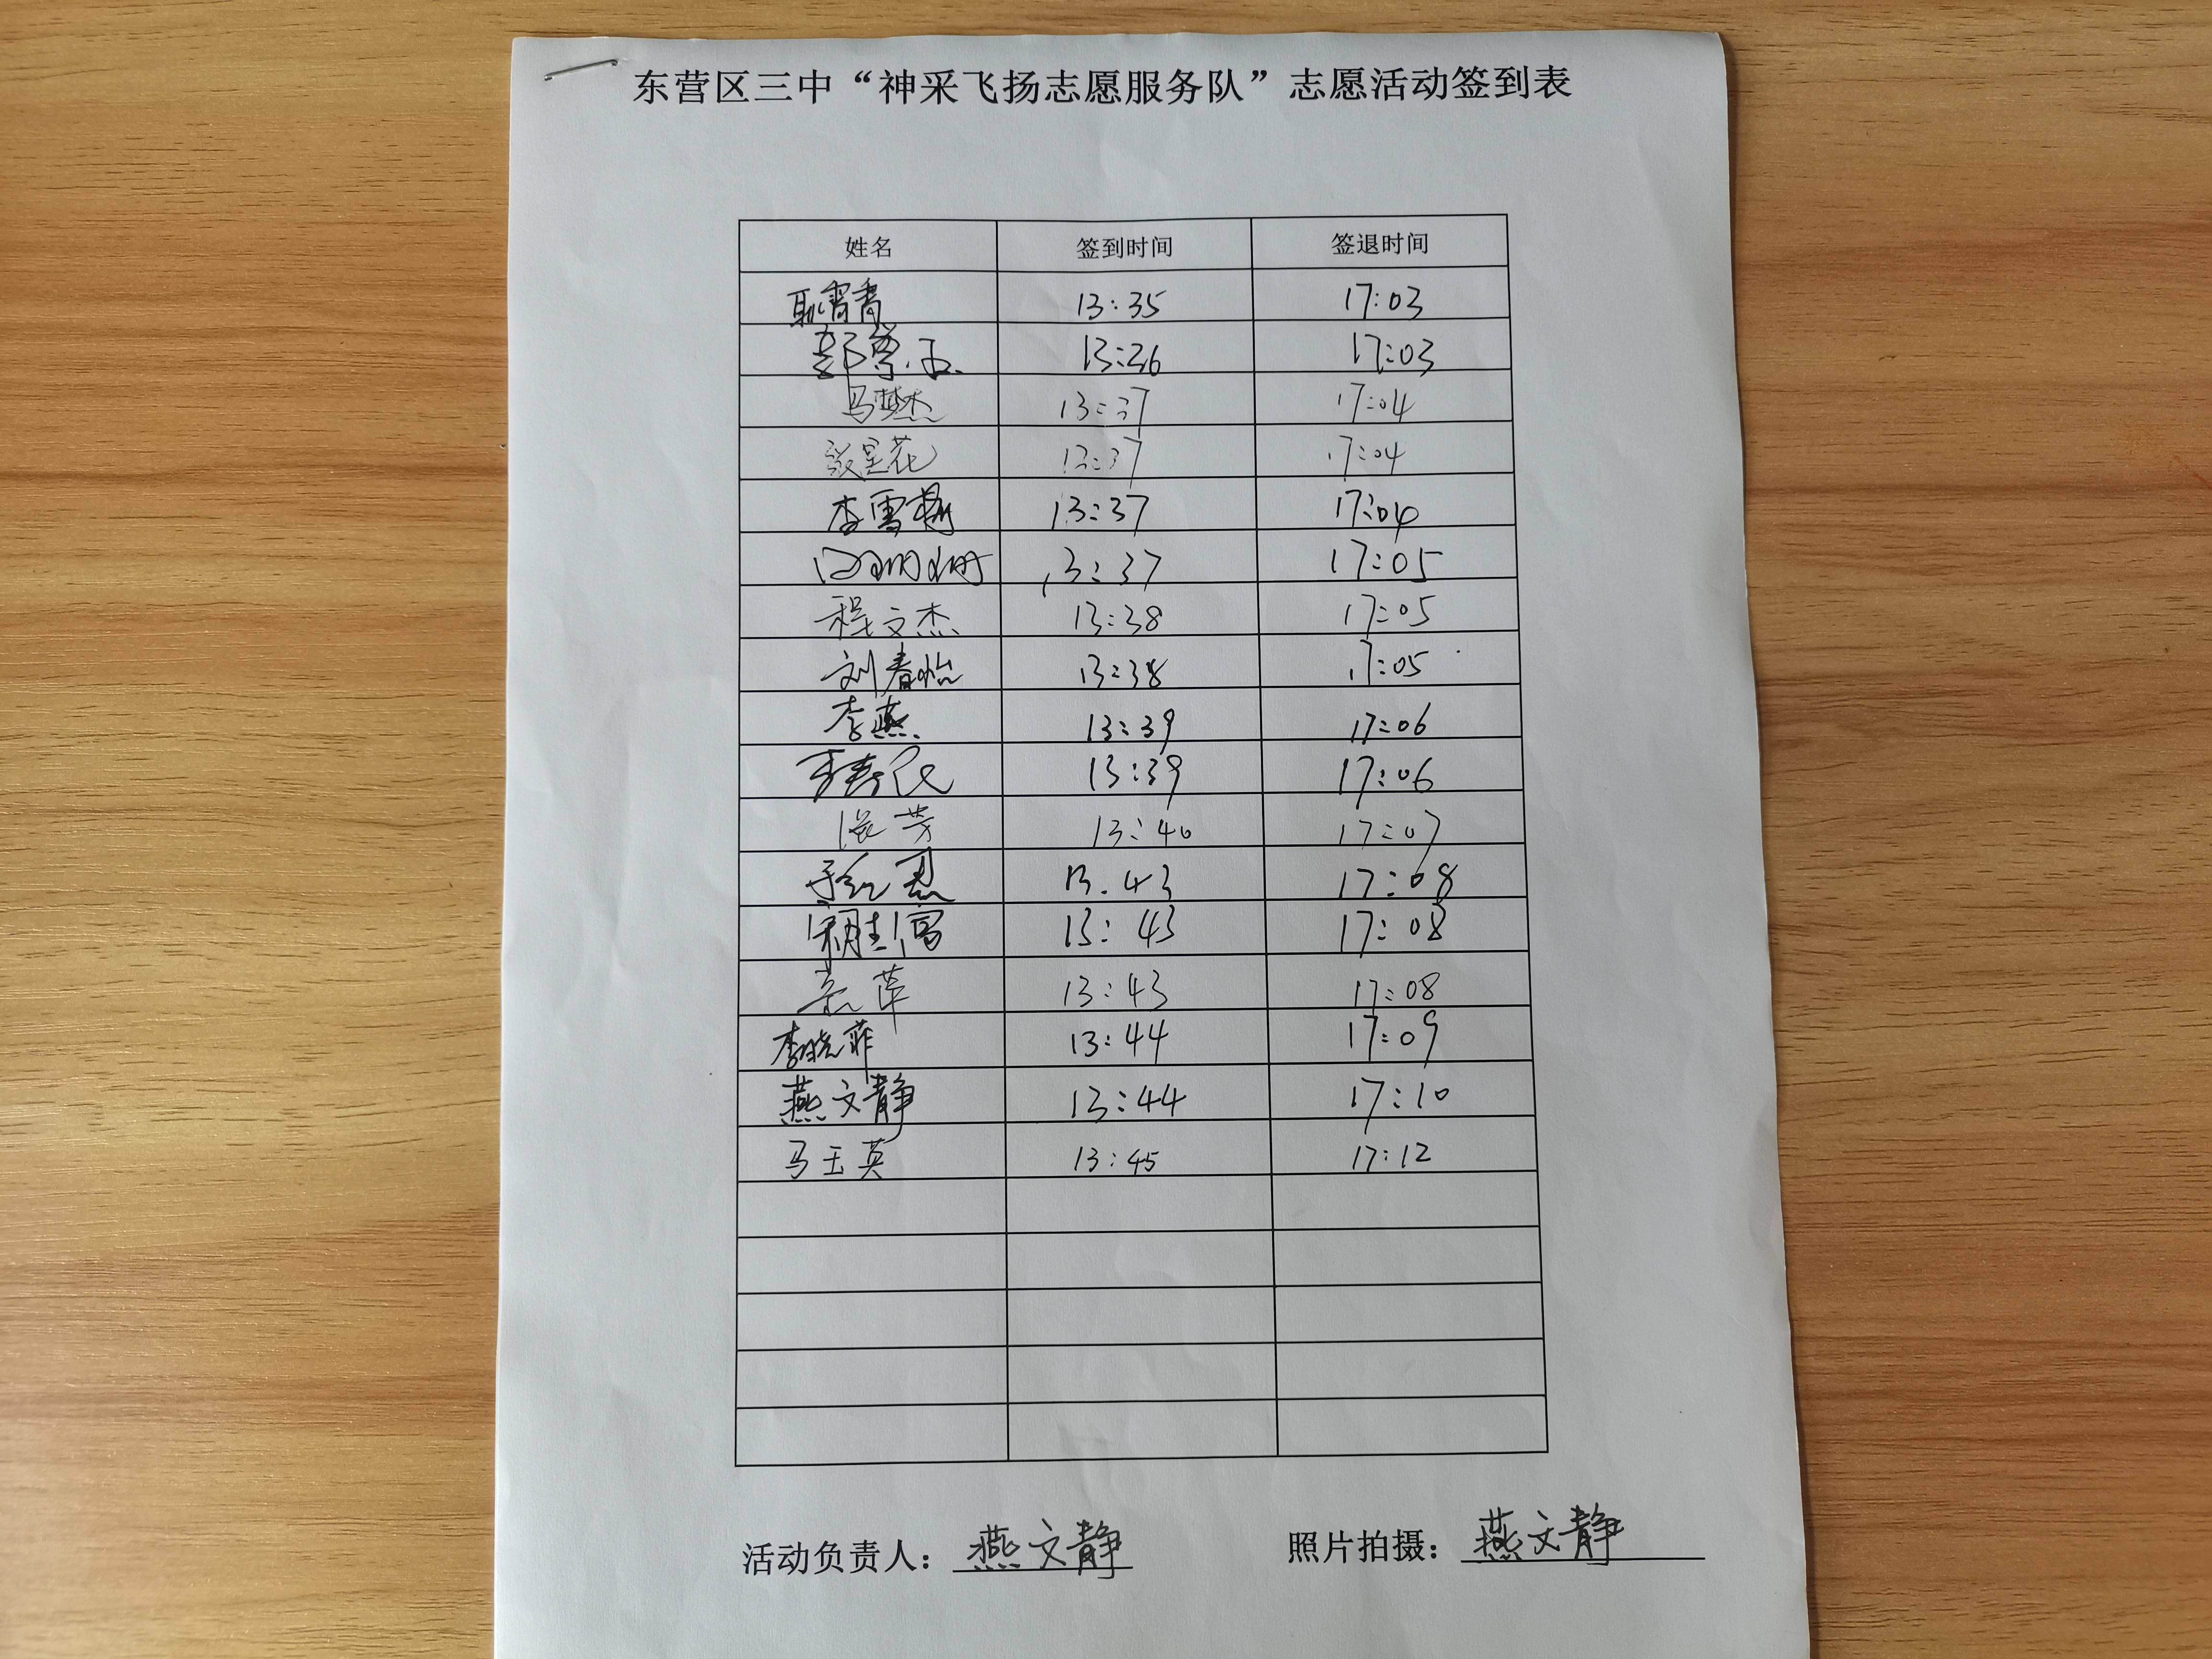 东营区三中“神采飞扬志愿服务队”志愿活动签到表
姓名 签到时间 签退时间
耿霄霄 13:35 17:03
13:36 17:03
马梦杰 13:37 17:04
13:37 17:04
李雪梅 13:37 17:04
珊珊 13:37 17:05
程文杰 13:38 17:05
刘春怡 13:38 17:05
李燕 13:39 17:06
13:39 17:06
芳 13:40 17:07
13.43 17:08
13:43 17:08
萍 13:43 17:08
李晓菲 13:44 17:09
燕文静 13:44 17:10
马玉英 13:45 17:12
活动负责人：燕文静 照片拍摄：燕文静